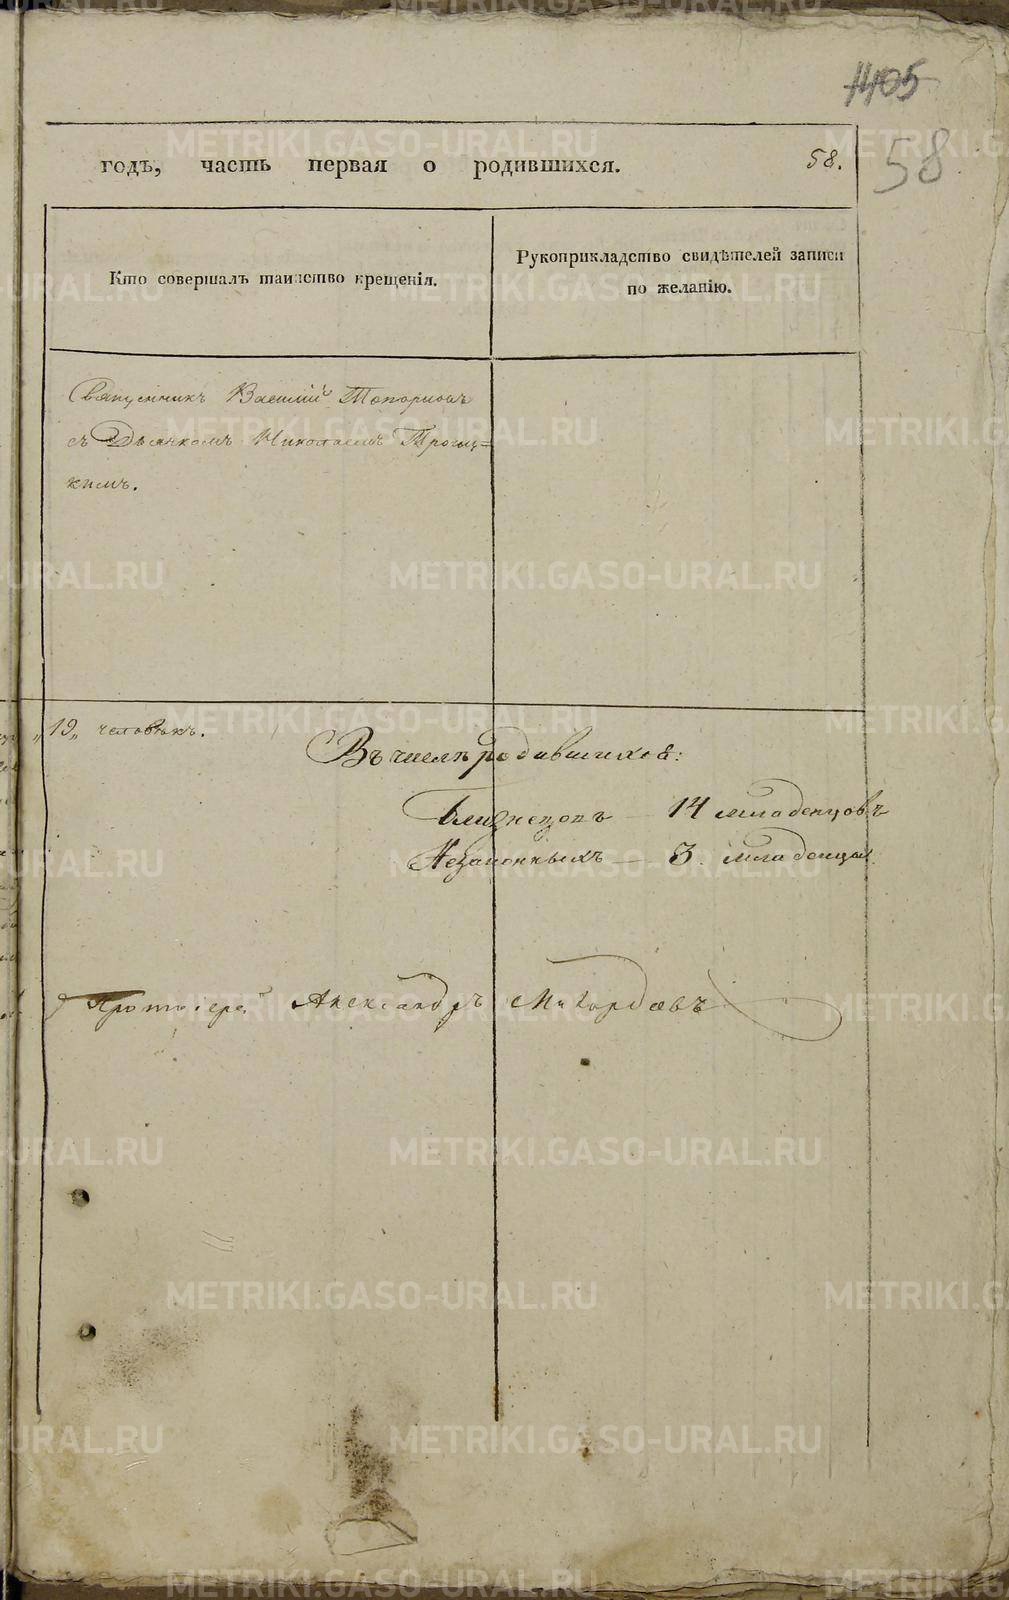 1405
годъ, часть первая о родившихся. 58.
58
Кто совершалъ таинство крещенія.
Рукоприкладство свидѣтелей записи
по желанію.
Священникъ Василій Топорковъ
съ Дьячкомъ Николаемъ Троиц=
кимъ.
„19„ человѣкъ.
Въ числѣ родившихся:
Близнецовъ — 14 младенцовъ
Незаконныхъ — 3. младенца.
Протоіерей Александръ
METRIKI.GASO-URAL.RU